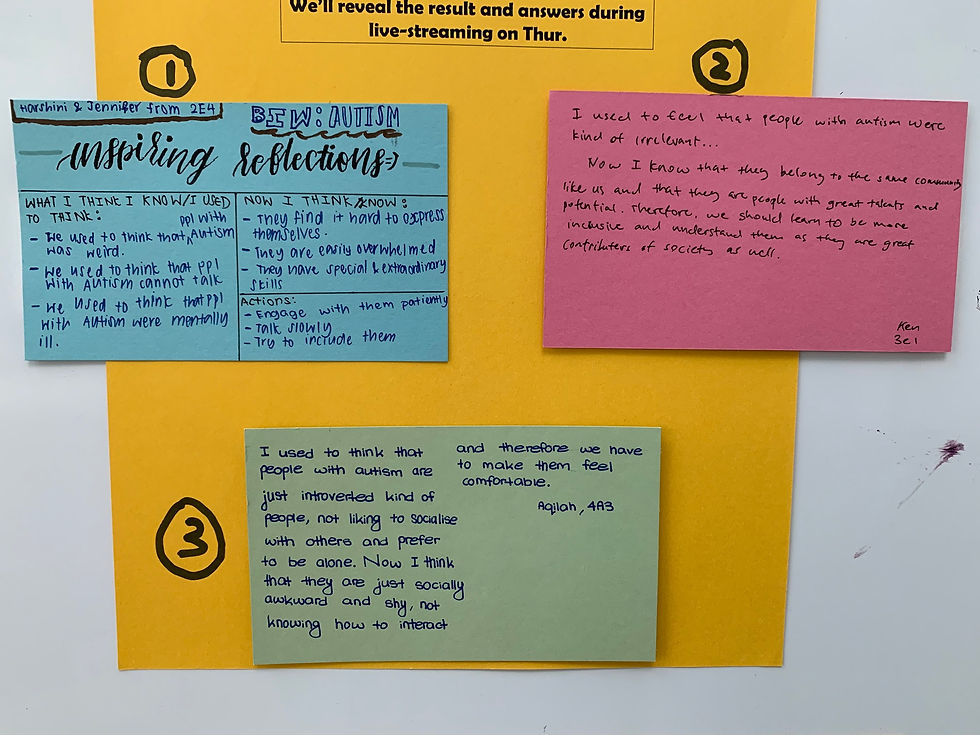 We'll reveal the result and answers during
live-streaming on Thur.
1
Harshini & Jennifer from 2E4
BEW: AUTISM
inspiring reflections
WHAT I THINK I KNOW/I USED
TO THINK:
- We used to think that ppl with Autism
was weird.
- We used to think that ppl
with Autism cannot talk
- We used to think that ppl
with Autism were mentally
ill.
NOW I THINK/KNOW:
- They find it hard to express
themselves.
- They are easily overwhelmed
- They have special & extraordinary
skills
Actions:
- Engage with them patiently
- Talk slowly
- Try to include them
2
I used to feel that people with autism were
kind of irrelevant...
Now I know that they belong to the same community
like us and that they are people with great talents and
potential. Therefore, we should learn to be more
inclusive and understand them as they are great
contributers of society as well.
Ken
3e1
3
I used to think that
people with autism are
just introverted kind of
people, not liking to socialise
with others and prefer
to be alone. Now I think
that they are just socially
awkward and shy, not
knowing how to interact
and therefore we have
to make them feel
comfortable.
Aqilah, 4A3